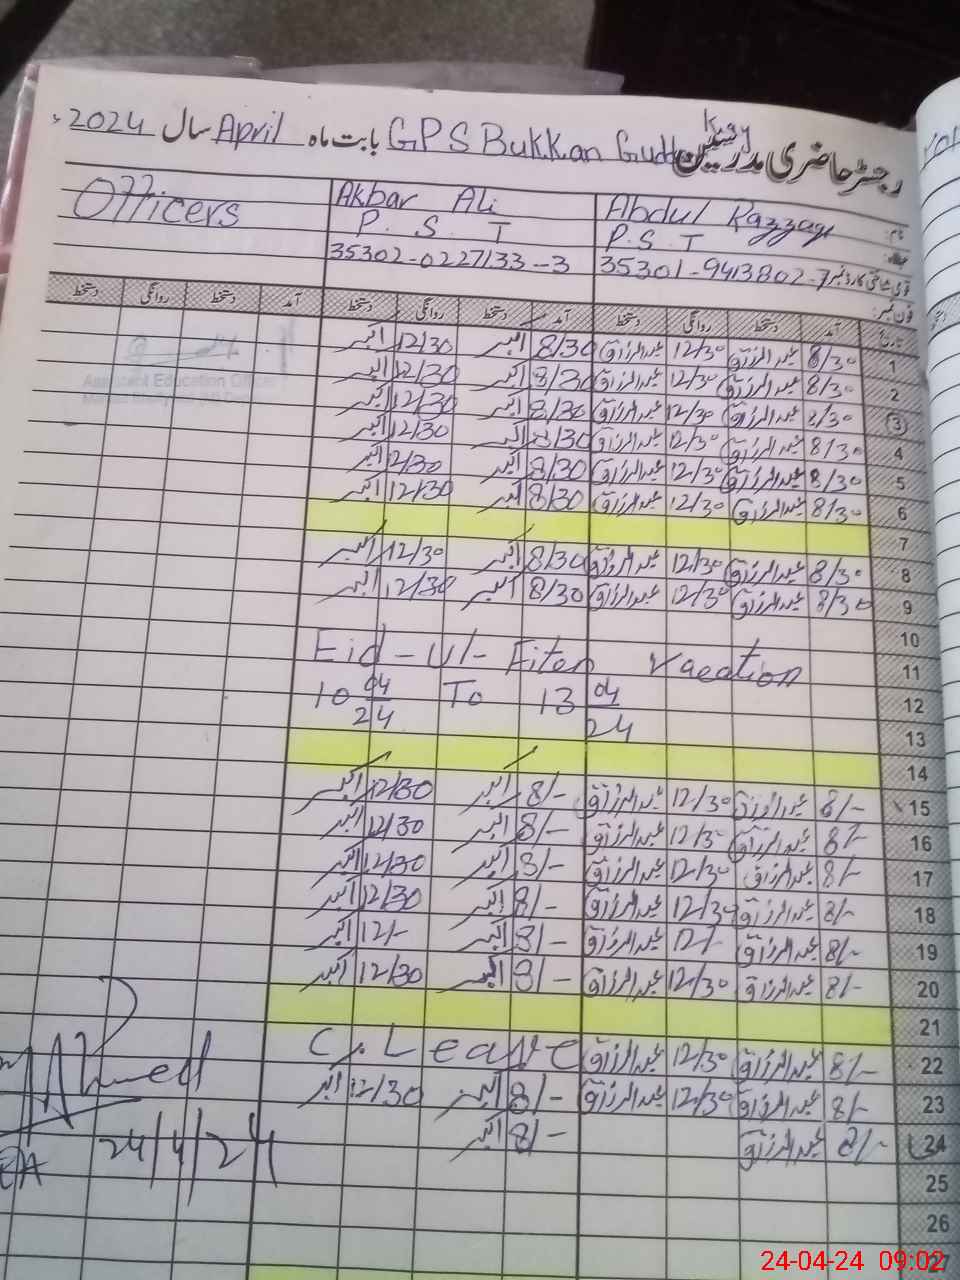 رجسٹر حاضری مدرسین GPS Bukkan Gudd بابت ماہ April سال 2024ء
نام: Abdul Razzaq Akbar Ali Officers
عہدہ: P.S.T P. S. T
قومی شناختی کارڈ نمبر 35301-9413802-7 35302-0227133-3
فون نمبر:
تاریخ آمد دستخط روانگی دستخط آمد دستخط روانگی دستخط آمد دستخط روانگی دستخط
1 8/30 عبدالرزاق 12/30 عبدالرزاق 8/30 اکبر 12/30 اکبر
2 8/30 عبدالرزاق 12/30 عبدالرزاق 8/30 اکبر 12/30 اکبر
Assistant Education Officer
3 8/30 عبدالرزاق 12/30 عبدالرزاق 8/30 اکبر 12/30 اکبر
4 8/30 عبدالرزاق 12/30 عبدالرزاق 8/30 اکبر 12/30 اکبر
5 8/30 عبدالرزاق 12/30 عبدالرزاق 8/30 اکبر 12/30 اکبر
6 8/30 عبدالرزاق 12/30 عبدالرزاق 8/30 اکبر 12/30 اکبر
7
8 8/30 عبدالرزاق 12/30 عبدالرزاق 8/30 اکبر 12/30 اکبر
9 8/30 عبدالرزاق 12/30 عبدالرزاق 8/30 اکبر 12/30 اکبر
10
11 Eid-Ul-Fiter Vacation
12 10 04/24 To 13 04/24
13
14
15 8/- عبدالرزاق 12/30 عبدالرزاق 8/- اکبر 12/30 اکبر
16 8/- عبدالرزاق 12/30 عبدالرزاق 8/- اکبر 12/30 اکبر
17 8/- عبدالرزاق 12/30 عبدالرزاق 8/- اکبر 12/30 اکبر
18 8/- عبدالرزاق 12/30 عبدالرزاق 8/- اکبر 12/30 اکبر
19 8/- عبدالرزاق 12/- عبدالرزاق 8/- اکبر 12/- اکبر
20 8/- عبدالرزاق 12/30 عبدالرزاق 8/- اکبر 12/30 اکبر
21
22 8/- عبدالرزاق 12/30 عبدالرزاق C.Leave
23 8/- عبدالرزاق 12/30 عبدالرزاق 8/- اکبر 12/30 اکبر
24 8/- عبدالرزاق 8/- اکبر
24/4/24
25
26
27
24-04-24 09:02